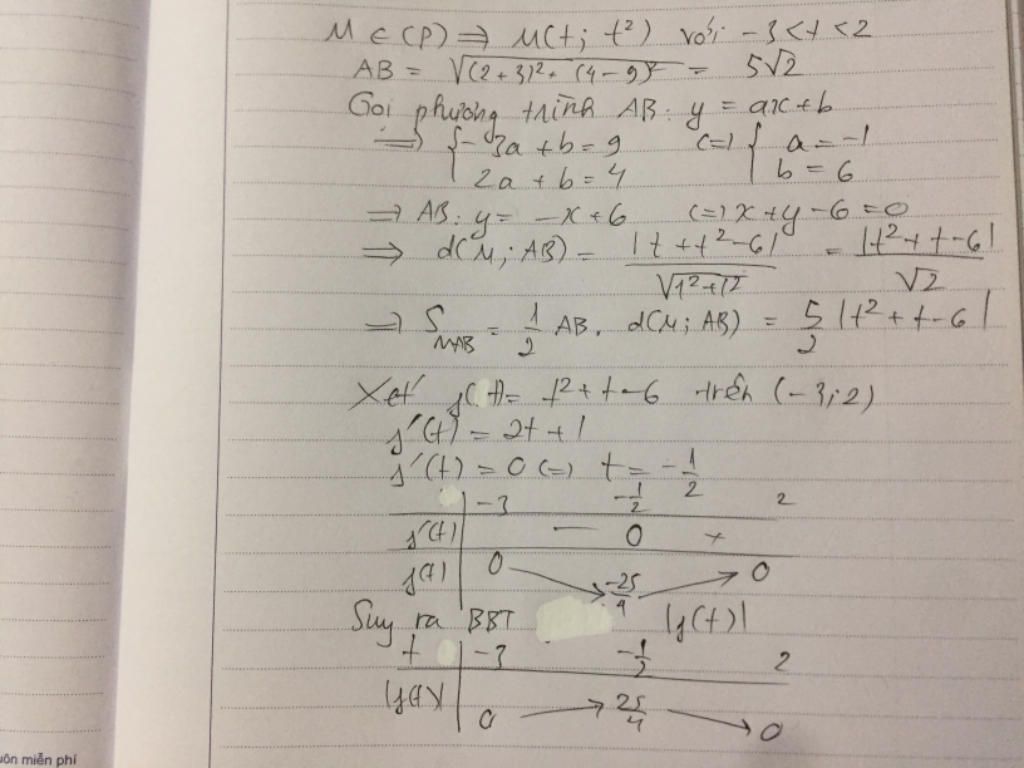 M ∈ (P) ⇒ M(t; t²) với -3 < t < 2
AB = √(2+3)² + (4-9)² = 5√2
Gọi phương trình AB: y = ax + b
⇒ { -3a + b = 9 (=) { a = -1
2a + b = 4 b = 6
⇒ AB: y = -x + 6 (=) x + y - 6 = 0
⇒ d(M; AB) = |t + t² - 6| / √1² + 1² = |t² + t - 6| / √2
⇒ S MAB = 1/2 AB. d(M; AB) = 5/2 |t² + t - 6|
Xét f(t) = t² + t - 6 trên (-3; 2)
f'(t) = 2t + 1
f'(t) = 0 (=) t = -1/2
-3 -1/2 2
f'(t) - 0 +
f(t) 0 -25/4 0
Suy ra BBT |f(t)|
t -3 -1/2 2
|f(t)| 0 25/4 0
uôn miễn phí